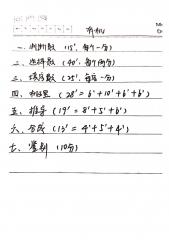 有机
一、判断题 (15', 每个一分)
二、选择题 (40', 每个两分)
三、填空题 (25', 每空一分)
四、 (28' = 6'+10'+6'+6')
五、推导 (19' = 8'+5'+6')
六、合成 (13' = 4'+5'+4')
七、鉴别 (10分)